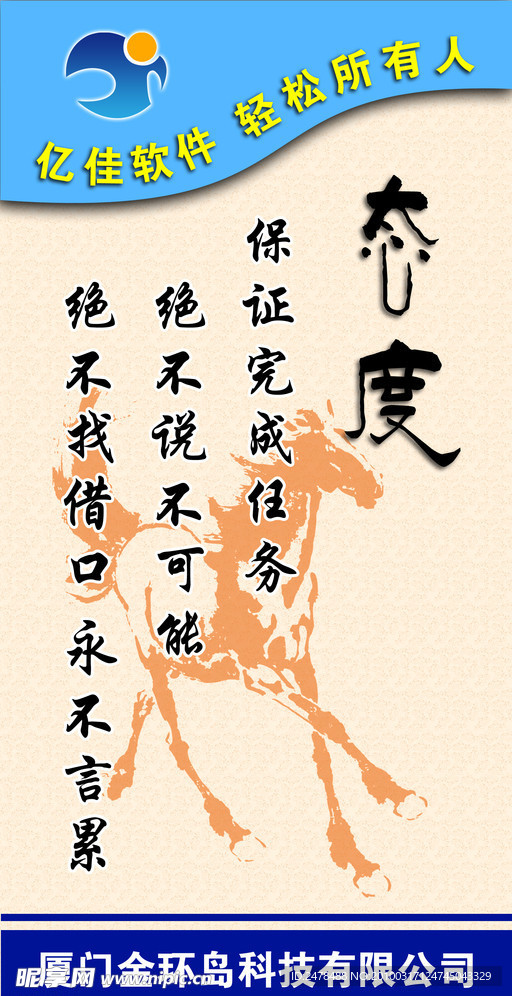 亿佳软件 轻松所有人
态度
保证完成任务
绝不说不可能
绝不找借口 永不言累
厦门金环岛科技有限公司
昵享网 www.nipic.cn